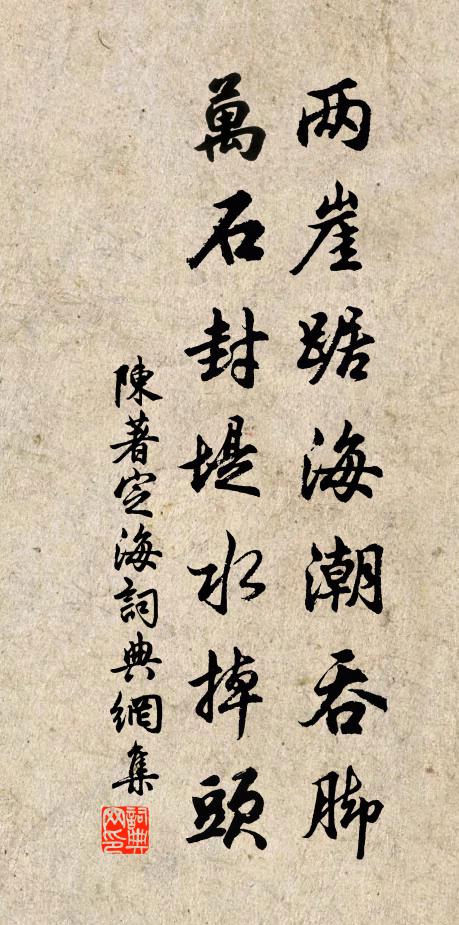 两崖踞海潮吞脚
萬石封堤水掉頭
陳著定海詞典網集
詞典网印